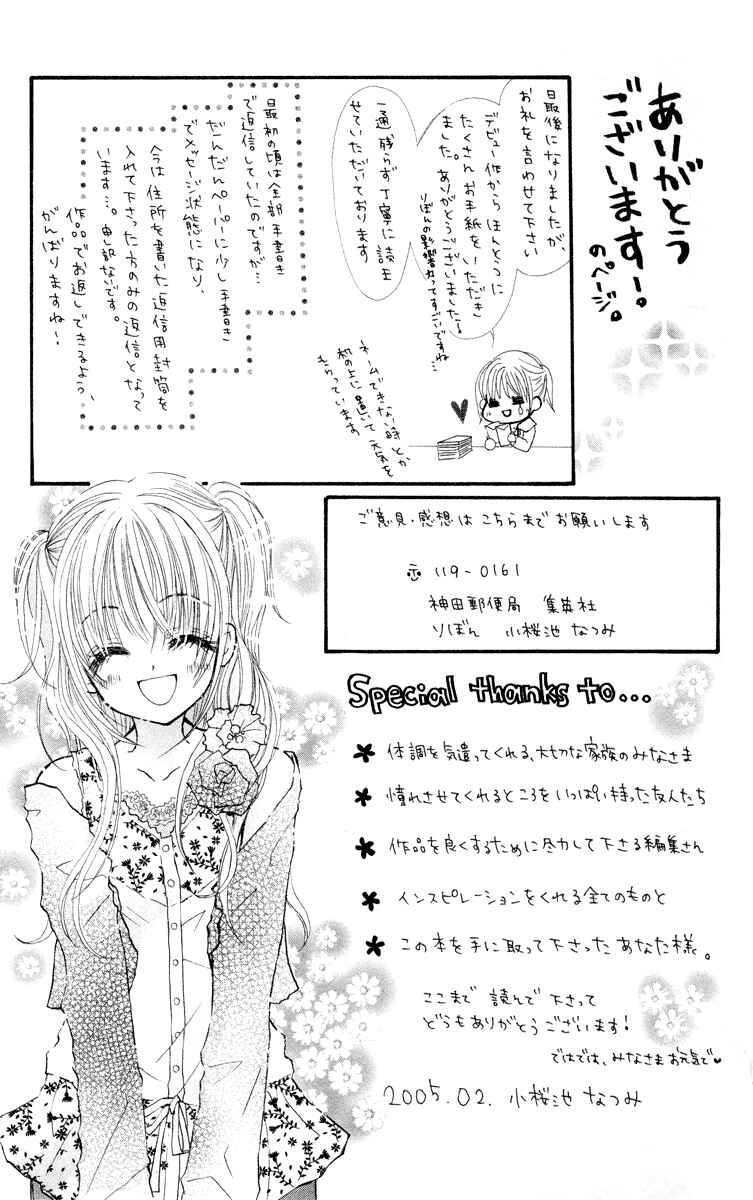 ありがとう
ございます!
のページ。
日最後になりましたが、
お礼を言わせて下さい
デビュー作から ほんとうに
たくさんお手紙をいただき
ました。ありがとうございました!
りぼんの影響力ってすごいですね…
一通 残らず 丁寧に 読ま
せていただいております
ネームできない時とか
机の上に置いて 元気を
もらっています
最初の頃は全部手書き
で返信していたのですが…
だんだんペーパーに少し手書き
でメッセージ状態になり、
今は 住所を書いた返信用封筒を
入れて下さった方のみの返信となって
います…。申し訳ないです。
作品でお返しできるよう、
がんばりますね!
ご意見・感想は こちらまで お願いします
〒 119-0161
神田郵便局 集英社
りぼん 小桜池 なつみ
Special thanks to...
* 体調を気遣ってくれる、大切な家族のみなさま
* 憧れさせてくれるところを いっぱい持った友人たち
* 作品を良くするために尽力して下さる編集さん
* インスピレーションをくれる全てのものと
* この本を手に取って下さった あなた様。
ここまで 読んで 下さって
どうもありがとうございます!
ではでは、みなさま お元気で♥
2005.02. 小桜池 なつみ